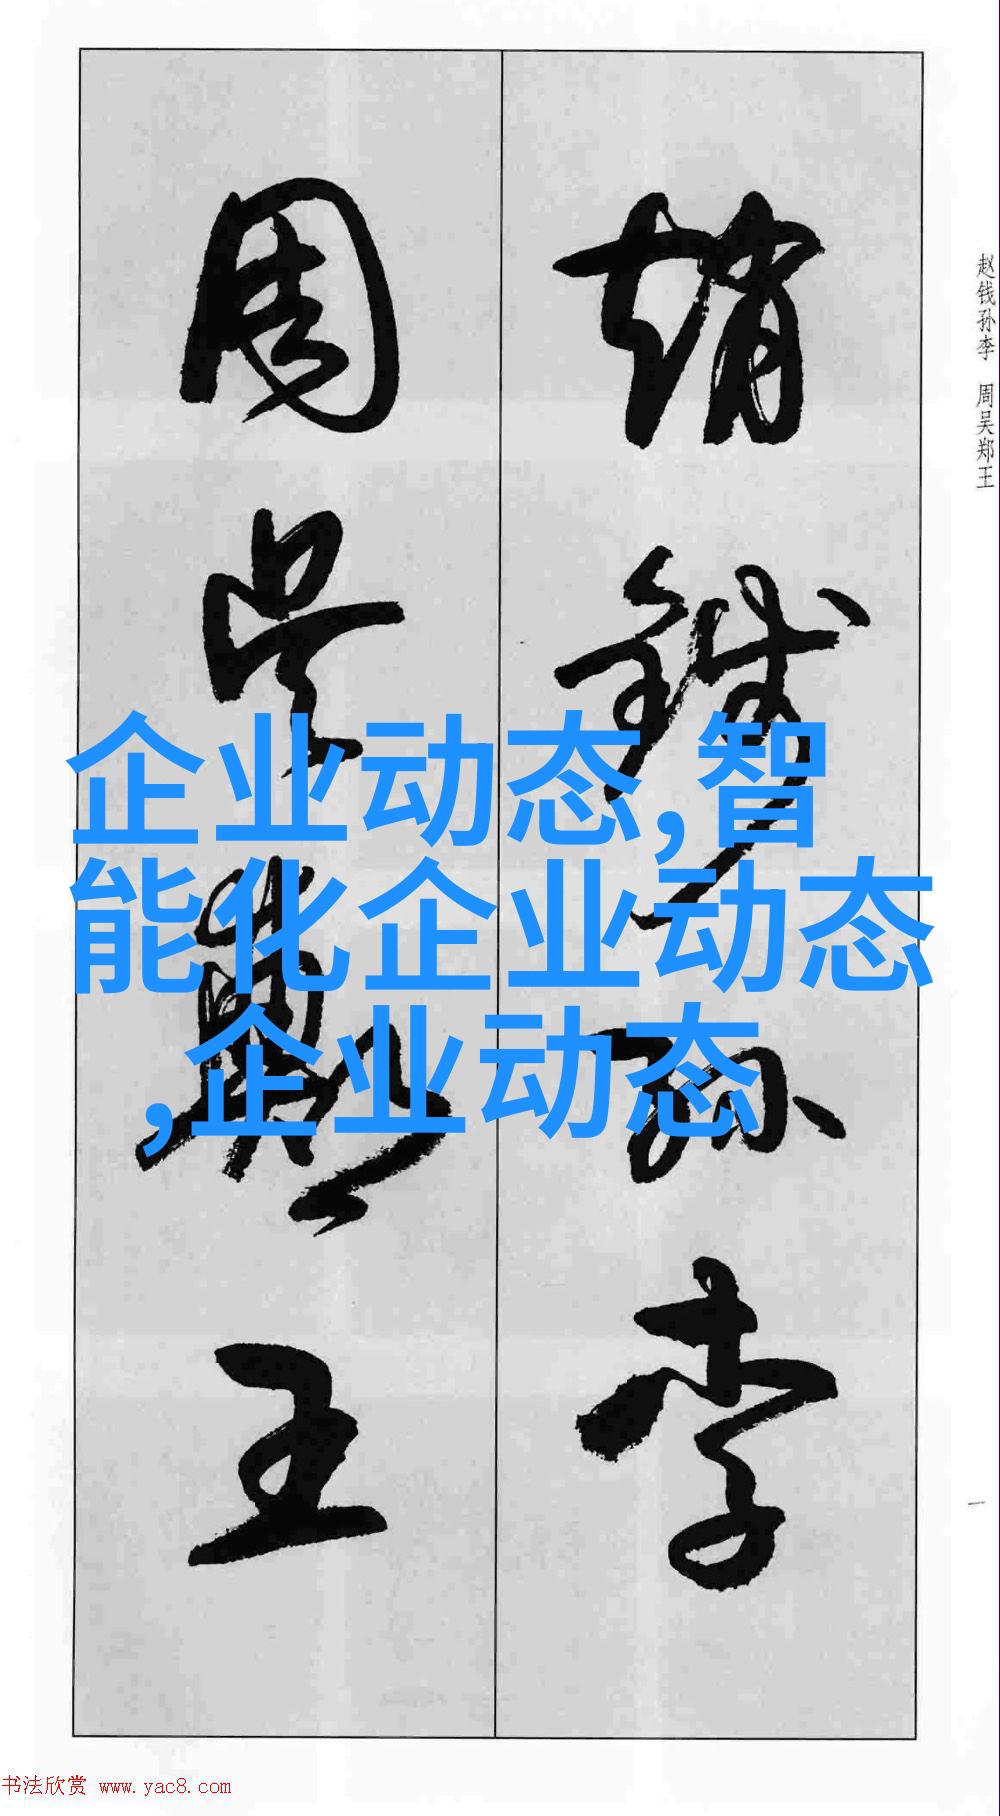 趙錢孫李
周吳鄭王
赵钱孙李 周吴郑王
一
企业动态,智
能化企业动态
,企业动态
书法欣赏 www.yac8.com